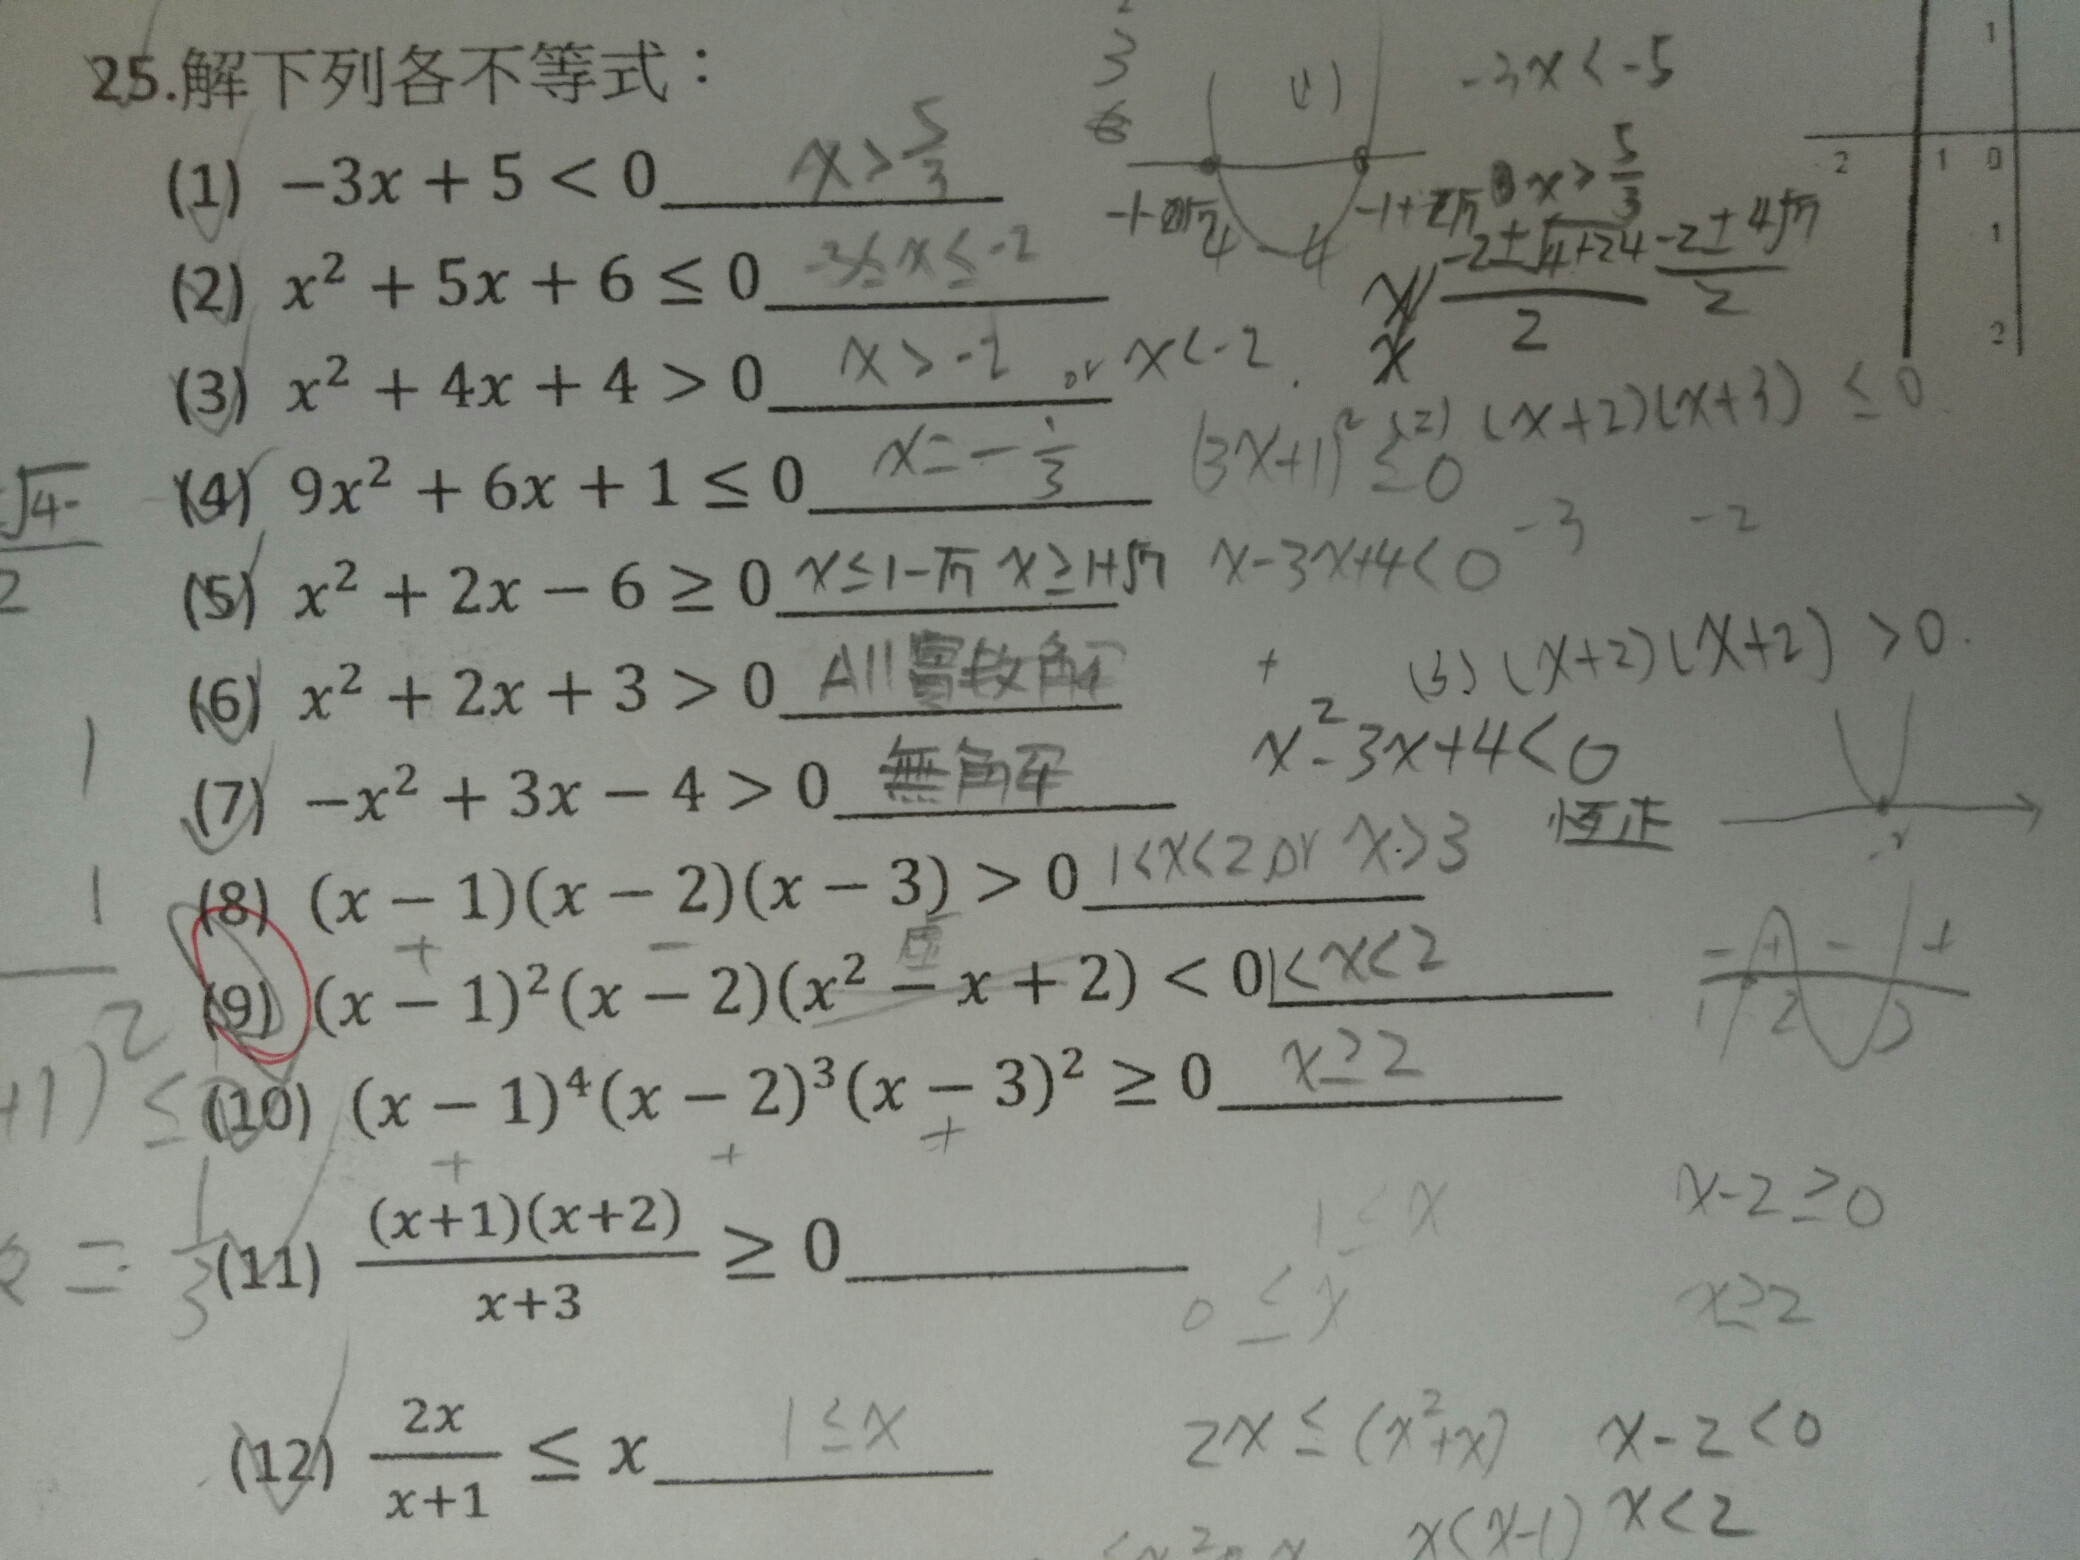 25.解下列各不等式：
(1) −3x + 5 < 0 x > 5/3
(2) x² + 5x + 6 ≤ 0 -3≤ x ≤ -2
(3) x² + 4x + 4 > 0 x > -2 or x < -2.
(4) 9x² + 6x + 1 ≤ 0 x = -1/3
(5) x² + 2x − 6 ≥ 0 x ≤ 1-√7 x ≥ 1+√7
(6) x² + 2x + 3 > 0 All實數解
(7) −x² + 3x − 4 > 0 無解
(8) (x − 1)(x − 2)(x − 3) > 0 1<x<2 or x>3
+ − 虛
(9) (x − 1)²(x − 2)(x² − x + 2) < 0 1<x<2
(10) (x − 1)⁴(x − 2)³(x − 3)² ≥ 0 x ≥ 2
+ + +
(11) (x+1)(x+2)/(x+3) ≥ 0
(12) 2x/(x+1) ≤ x 1 ≤ x
(1)
-3x < -5
x > 5/3
-2±√4+24 / 2
-2±4√7 / 2
(2) (x+2)(x+3) ≤ 0
-3 -2
(3x+1)² ≤ 0
x-3x+4<0
(3) (x+2)(x+2) > 0.
+
x²-3x+4<0
恆正
− + − +
1 2 3
1 ≤ x
0 ≤ x
x-2 ≥ 0
x ≥ 2
2x ≤ (x²+x)
x-2<0
x(x-1)
x<2
+1)² ≤
= 1/3
2
1
0
1
2
1